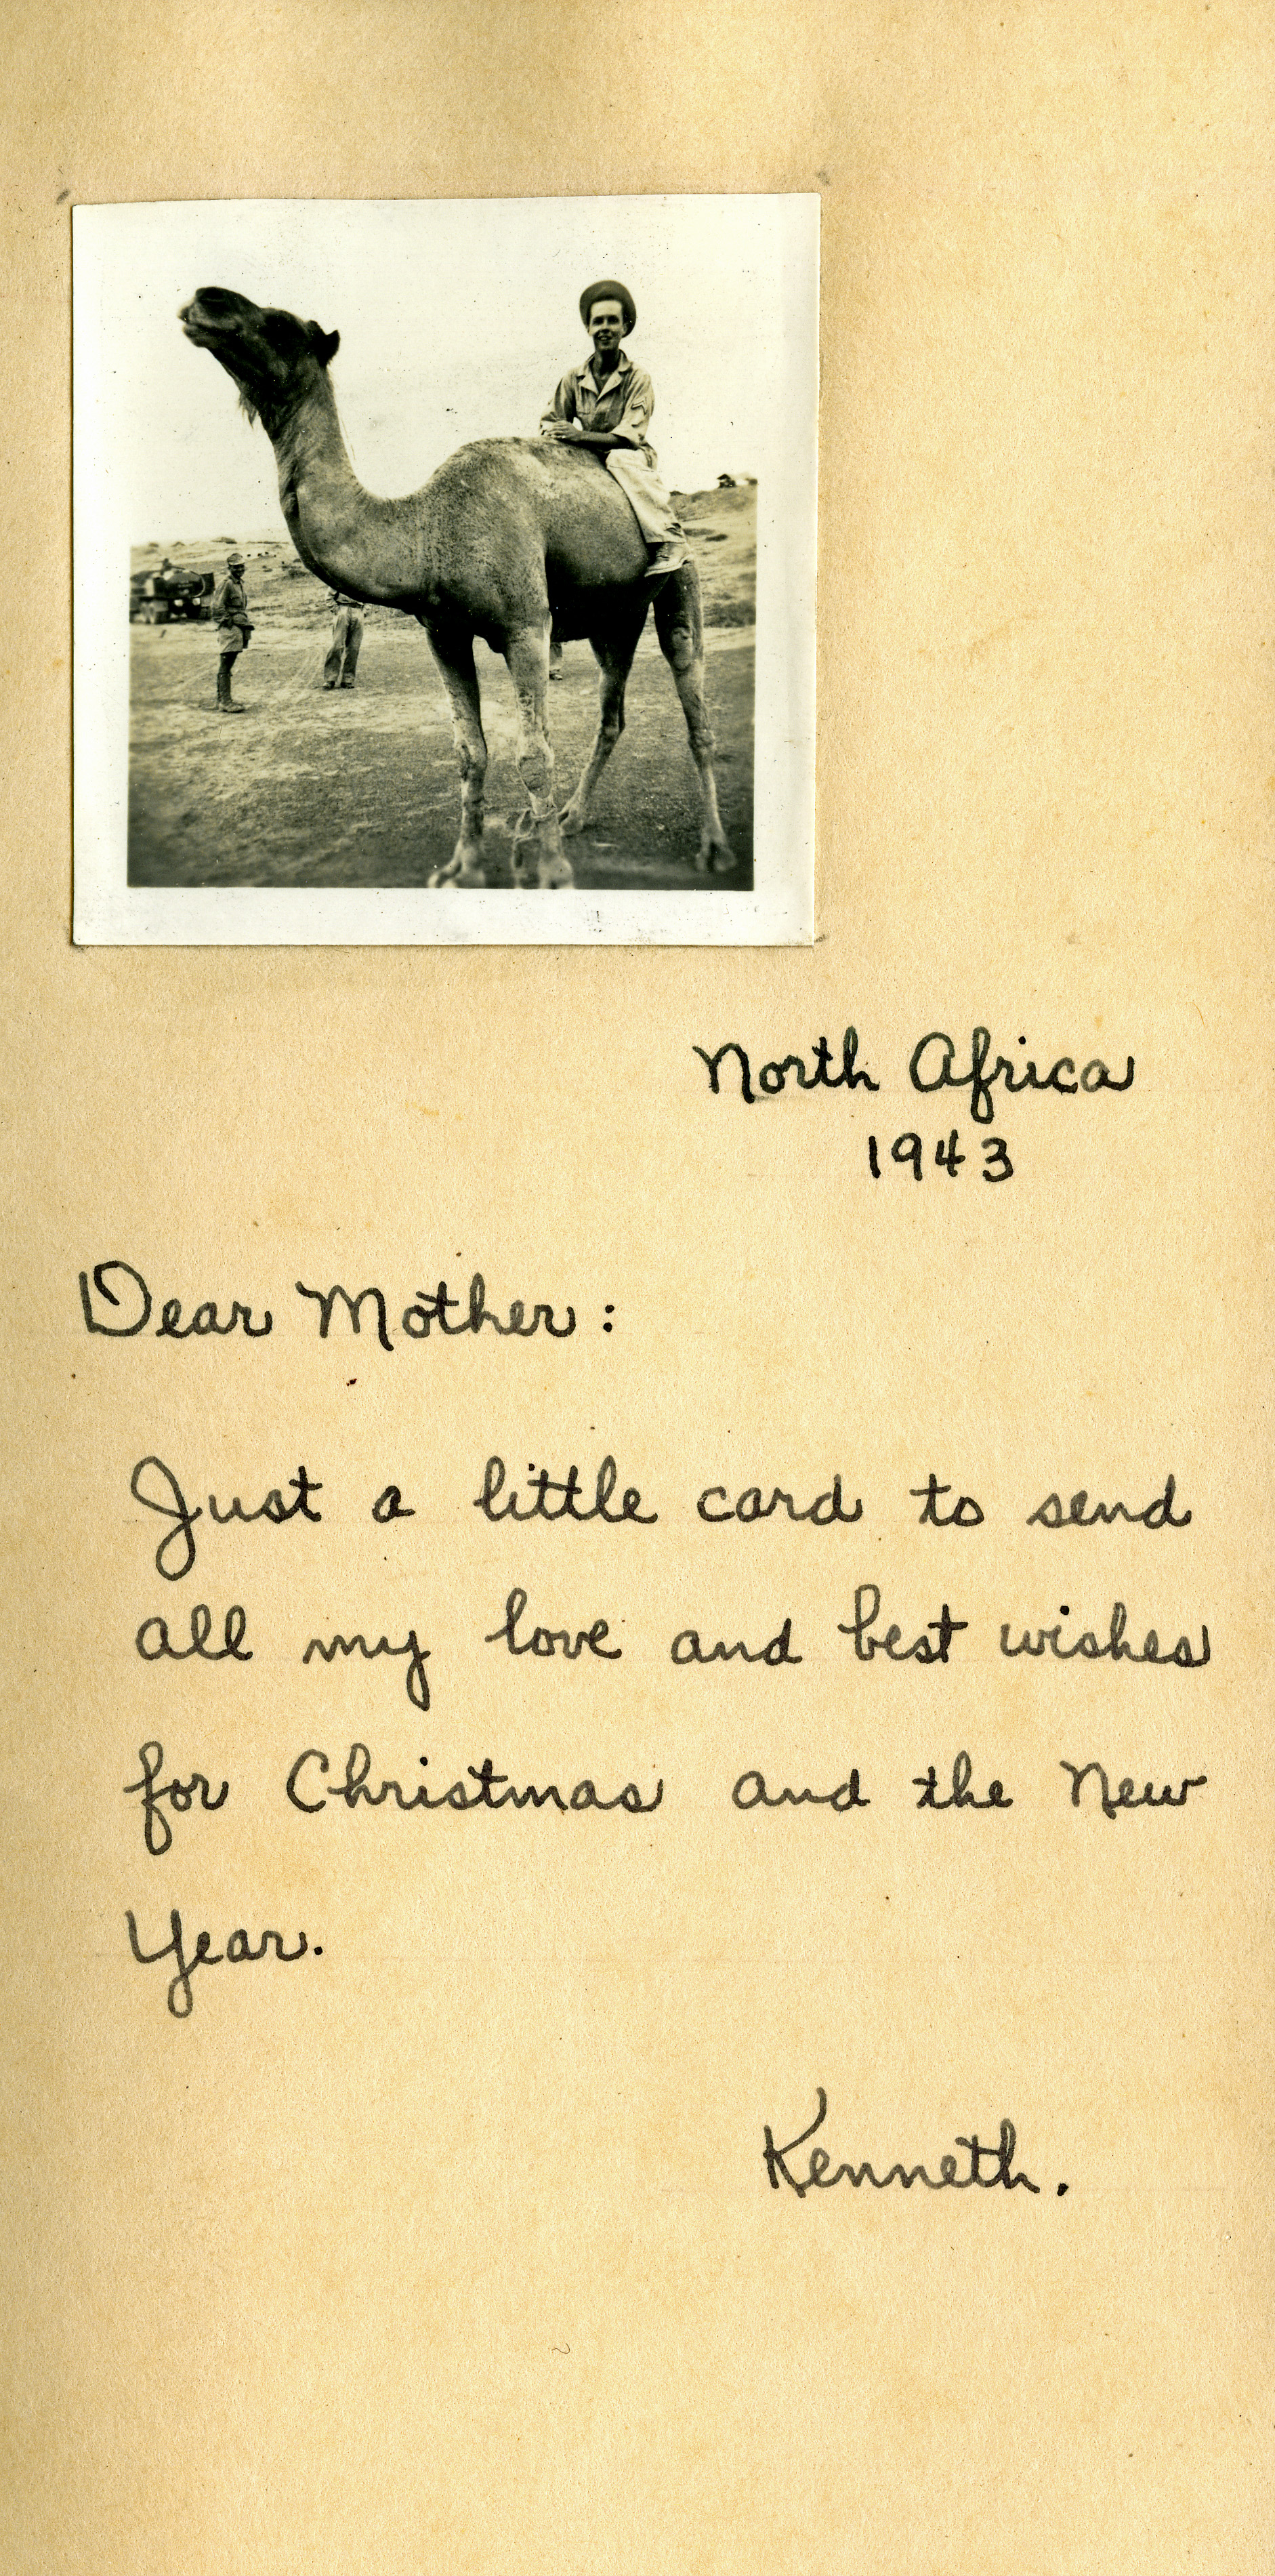 North Africa
1943
Dear Mother:
Just a little card to send
all my love and best wishes
for Christmas and the New
Year.
Kenneth.